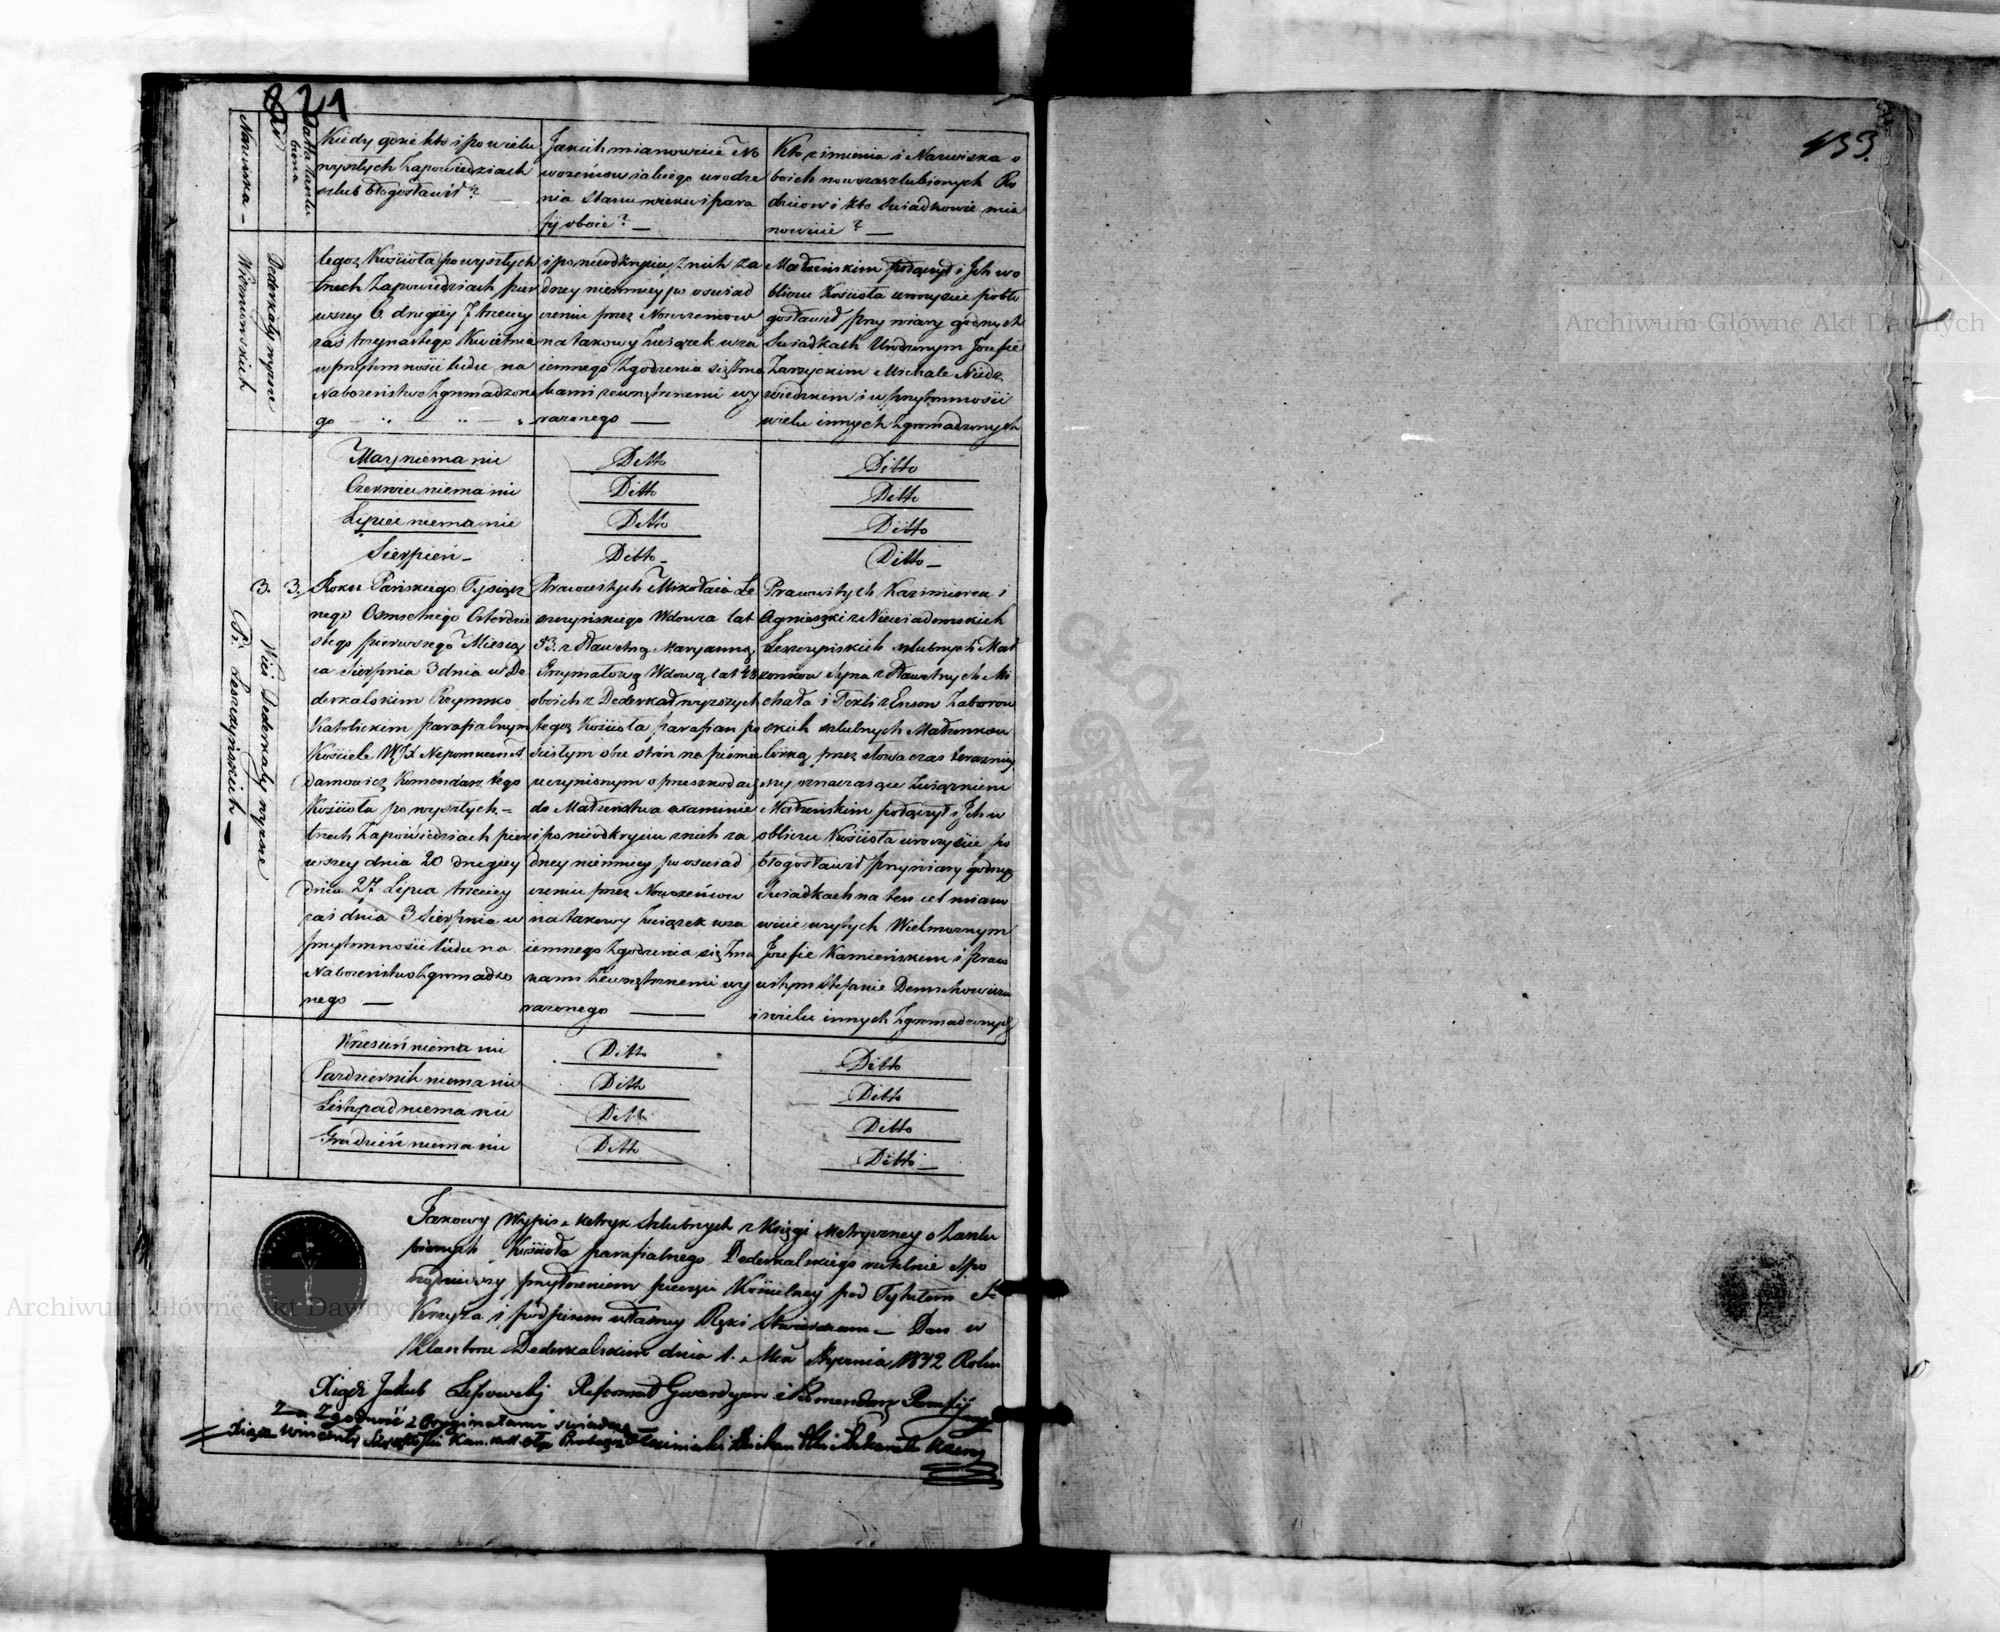 821
133.
Nazwiska —
Datta zaślubienia
Kiedy gdzie kto i po wielu
wyszłych zapowiedziach
szlub błogosławił?
Jakich mianowicie No
wożeniow iakiego urodze
nia stanu wieku i para
fij oboie? —
Kto z imienia i Nazwiska o
boich nowozaszlubionych Ro
dzicow i kto swiadkowie mia
nowicie? —
Dederkały wyższe
Wiszniowskich
tegoż Kościoła po wyszłych
trzech Zapowiedziach pier
wszey 6 drugiey 7 trzeciey
zaś trzynastego Kwietnia
w przytomności ludu na
Nabożeństwo zgromadzone
go —
i po nieodkryciu z nich ża
dney niemniey po oswiad
czeniu przez Nowożeńcow
na takowy związek wza
iemnego zgodzenia się zna
kami zewnętrznemi wy
rażonego —
Małżeńskim połączył i Ich w o
bliczu Kościoła uroczyście pobło
gosławił przy wiary godnych
Swiadkach Urodzonym Jozefie
Zarzyckim Michale Niedz
wiedzkim i w przytomności
wielu innych zgromadzonych
May niema nic
Ditto
Ditto
Czerwiec niema nic
Ditto
Ditto
Lipiec niema nic
Ditto
Ditto
Sierpień —
Ditto —
Ditto —
3. 3.
Wieś Dederkały wyższe
Leszczyńskich —
Roku Pańskiego Tysiącz
nego Osmsetnego Czterdzie
stego pierwszego Miesią
ca Sierpnia 3 dnia w De
derkalskim Rzymsko
Katolickim parafialnym
Kościele WJX Nepomucen A
damowicz Komendarz tego
Kościoła po wyszłych —
trzech Zapowiedziach pier
wszey dnia 20 drugiey
dnia 27 Lipca trzeciey
zaś dnia 3 Sierpnia w
przytomności ludu na
Nabożeństwo zgromadzo
nego —
Pracowitych Mikołaia Le
szczyńskiego Wdowca lat
53. z Sławetną Maryanną
Grzymałową Wdową lat 48
oboich z Dederkał wyższych
tegoż Kościoła parafian po
scisłym obu stron na piśmie
uczynionym o przeszkodach
do Małżeństwa examinie
i po nieodkryciu z nich ża
dney niemniey po oswiad
czeniu przez Nowożeńcow
na takowy związek wza
iemnego zgodzenia się zna
kami zewnętrznemi wy
rażonego —
Pracowitych Kazimierza i
Agnieszki z Niewiadomskich
Leszczyńskich szlubnych Mał
żonkow Syna z Sławetnych Mi
chała i Tekli Zaborow
skich szlubnych Małżonkow
Córką, przez słowa czas terazniey
szy oznaczaiące Związkiem
Małżeńskim połączył i Ich w
obliczu Kościoła uroczyście po
błogosławił przy wiary godnych
Swiadkach na ten cel miano
wicie użytych Wielmożnym
Jozefie Kamieńskim i praco
witym Stefanie Demchowiczu
i wielu innych zgromadzonych
Wrzesień niema nic
Ditto
Ditto
Pazdziernik niema nic
Ditto
Ditto
Listopad niema nic
Ditto
Ditto
Grudzień niema nic
Ditto
Ditto —
Takowy Wypis z Metryk szlubnych z Księgi Metryczney o Zaslu
bionych Kościoła parafialnego Dederkalskiego rzetelnie spo
rządziwszy przyłożeniem pieczęci Kościelney pod Tytułem S.
Krzyża i podpisem własney Ręki stwierdzam — Dan w
Klasztorze Dederkalskim dnia 1. Mca Stycznia 1842 Roku
Xiądz Jakub Reformat Gwardyan i Komendarz Parafij
Za Zgodność z Oryginałami swiadczę
Xiądz Wincenty
Archiwum Główne Akt Dawnych
Archiwum Główne Akt Dawnych